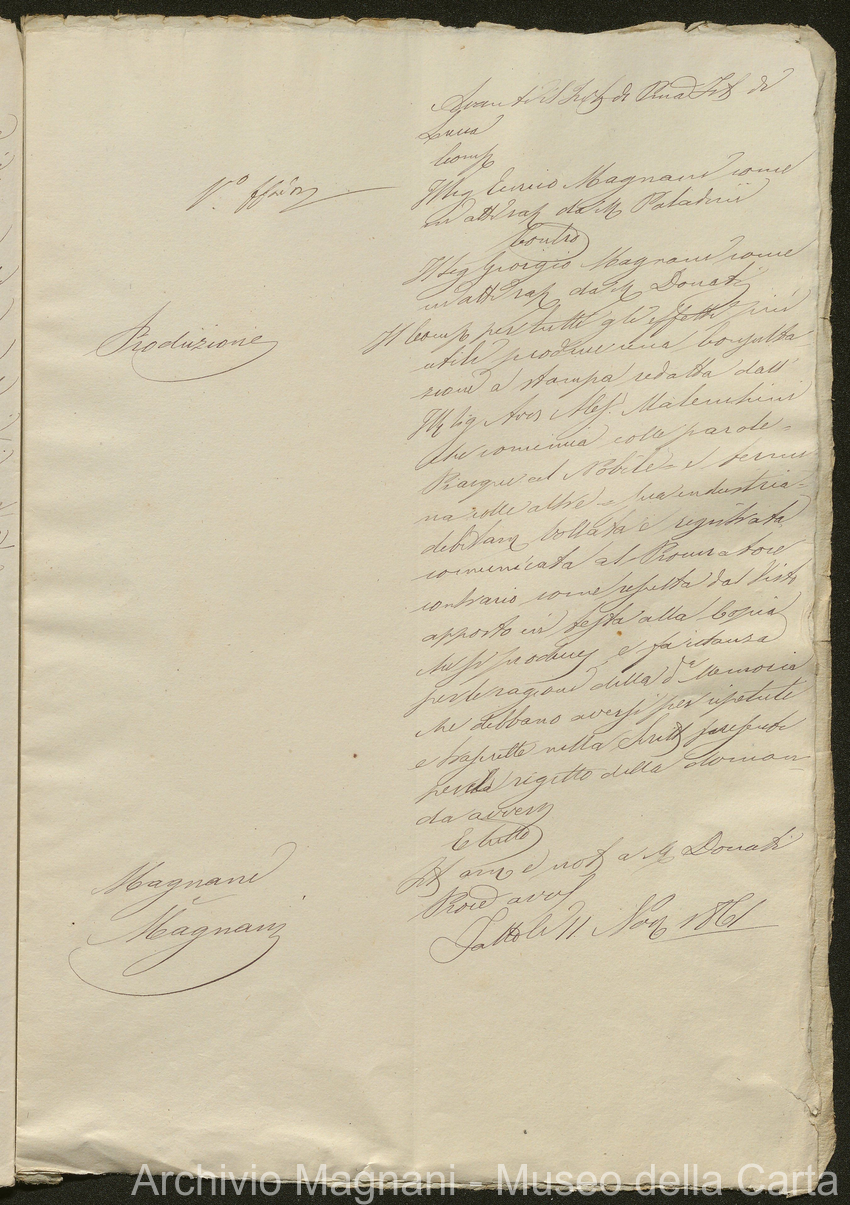 Avanti il Trib di Prua Ist di
Lucca
Comp
Il Sig Enrico Magnani come
in atti rap da M Paladini
Contro
Il Sig Giorgio Magnani come
in atti rap da M Donati
Il Comp per tutti gli effetti più
utili produce una Consulta-
zione a stampa redatta dall'
Ill Sig Avv Aless. Malenchini
che comincia colle parole =
Piacque al Nobile = e termi
na colle altre = sua industria =
debitam bollata e registrata
comunicata al Procuratore
contrario come resulta dal Visto
apposto in testa alla Copia
che si produce, e fa istanza
per le ragioni della da Memoria
che debbano aversi per ripetute
e trascritte nella Scritt presente
per il rigetto della doman-
da avvers
E tutto
Int am e not a M Donati
Proc avv
Fatto li 11 Nov 1861
Produzione
Magnani
e
Magnani
Archivio Magnani - Museo della Carta